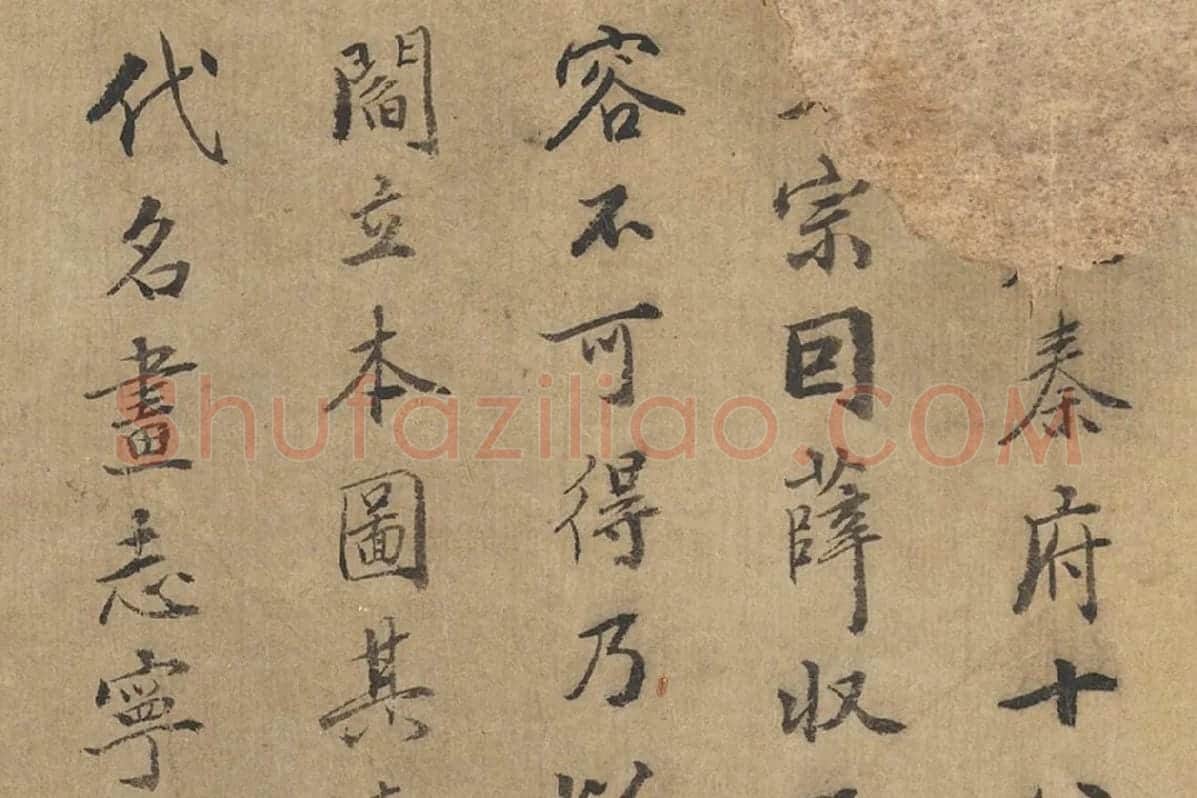 秦府十
宗因薛收
容不可得乃
閻立本圖其
代名畫志寧
Shufaziliao.COM